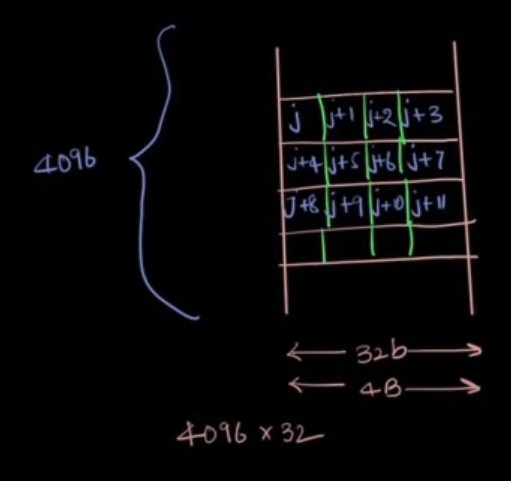 j j+1 j+2 j+3
4096
j+4 j+5 j+6 j+7
J+8 j+9 j+10 j+11
32b
4B
4096 × 32